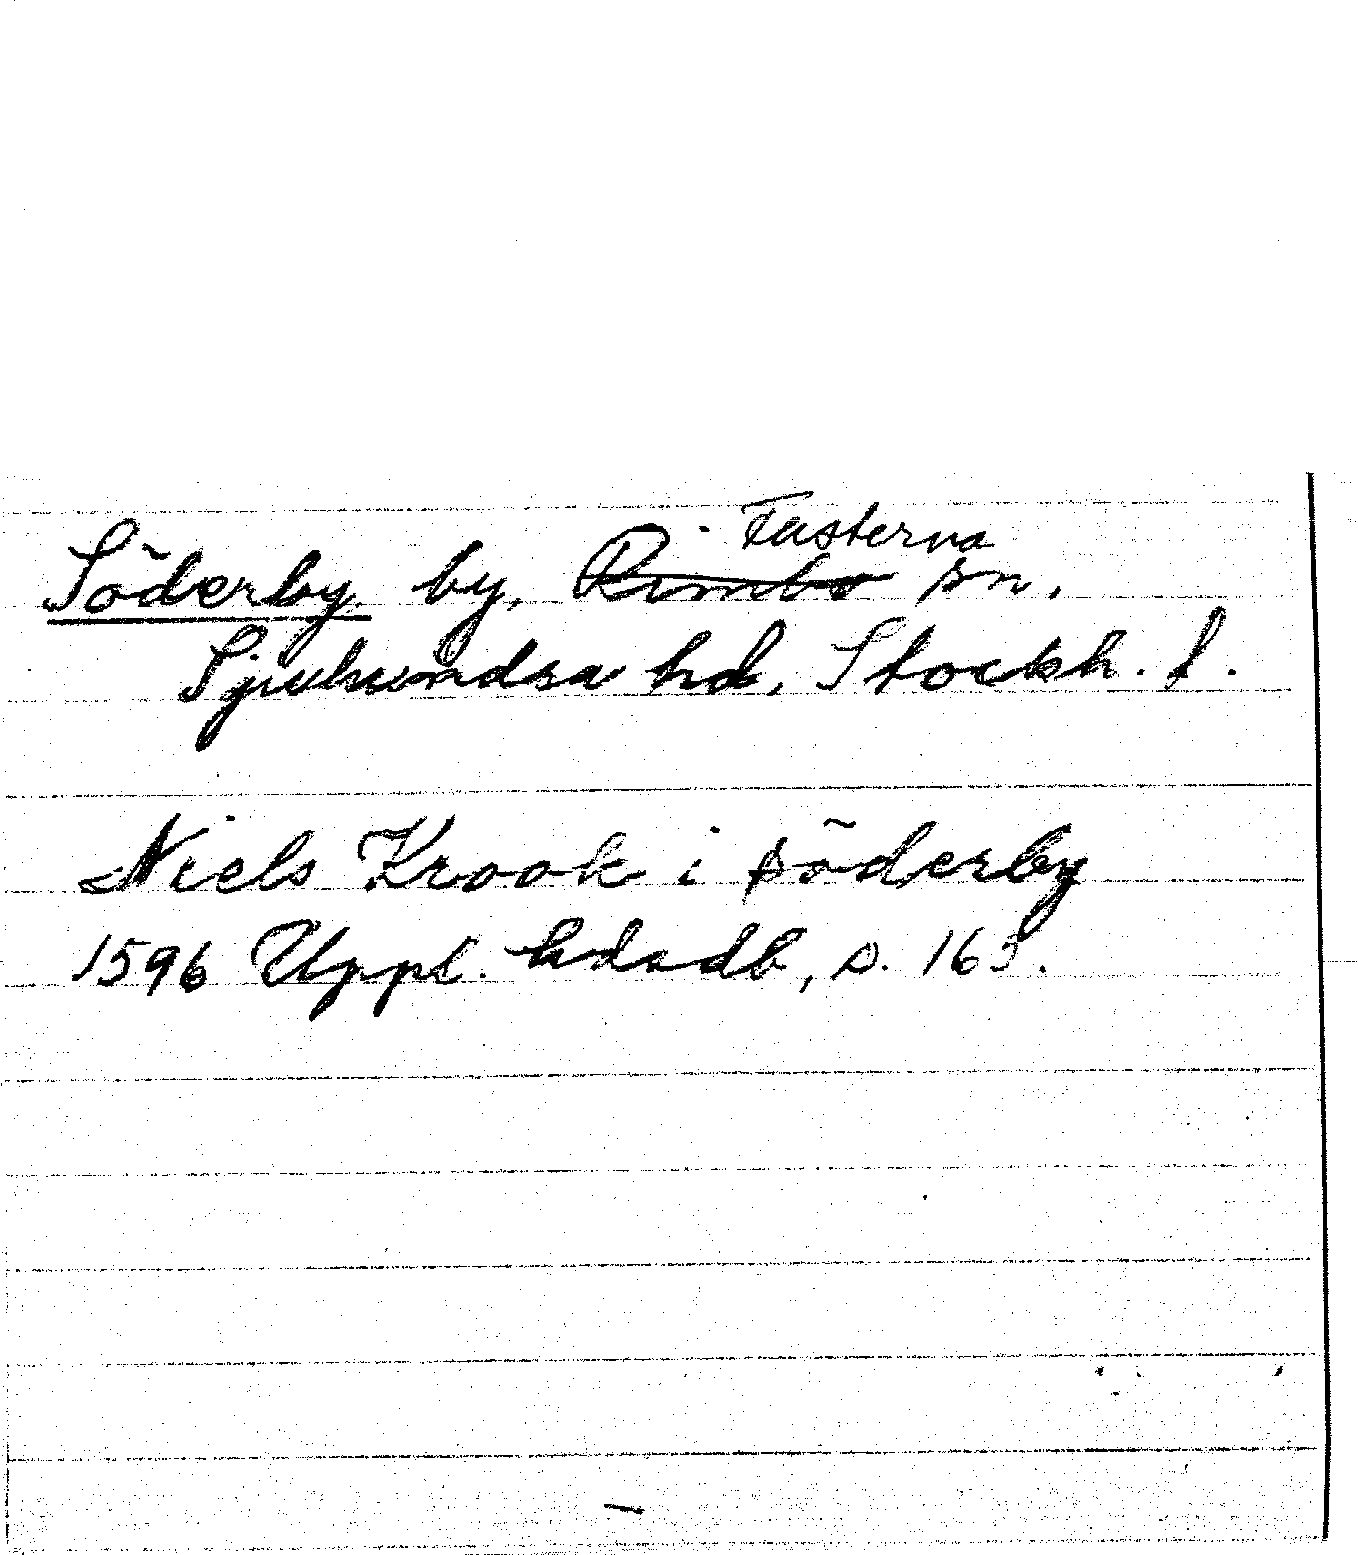 Fasterna
Söderby by, Rimbo sn,
Sjuhundra hd, Stockh. l.
Niels Krook i söderby
1596 Uppl. hdsdb, s. 163.